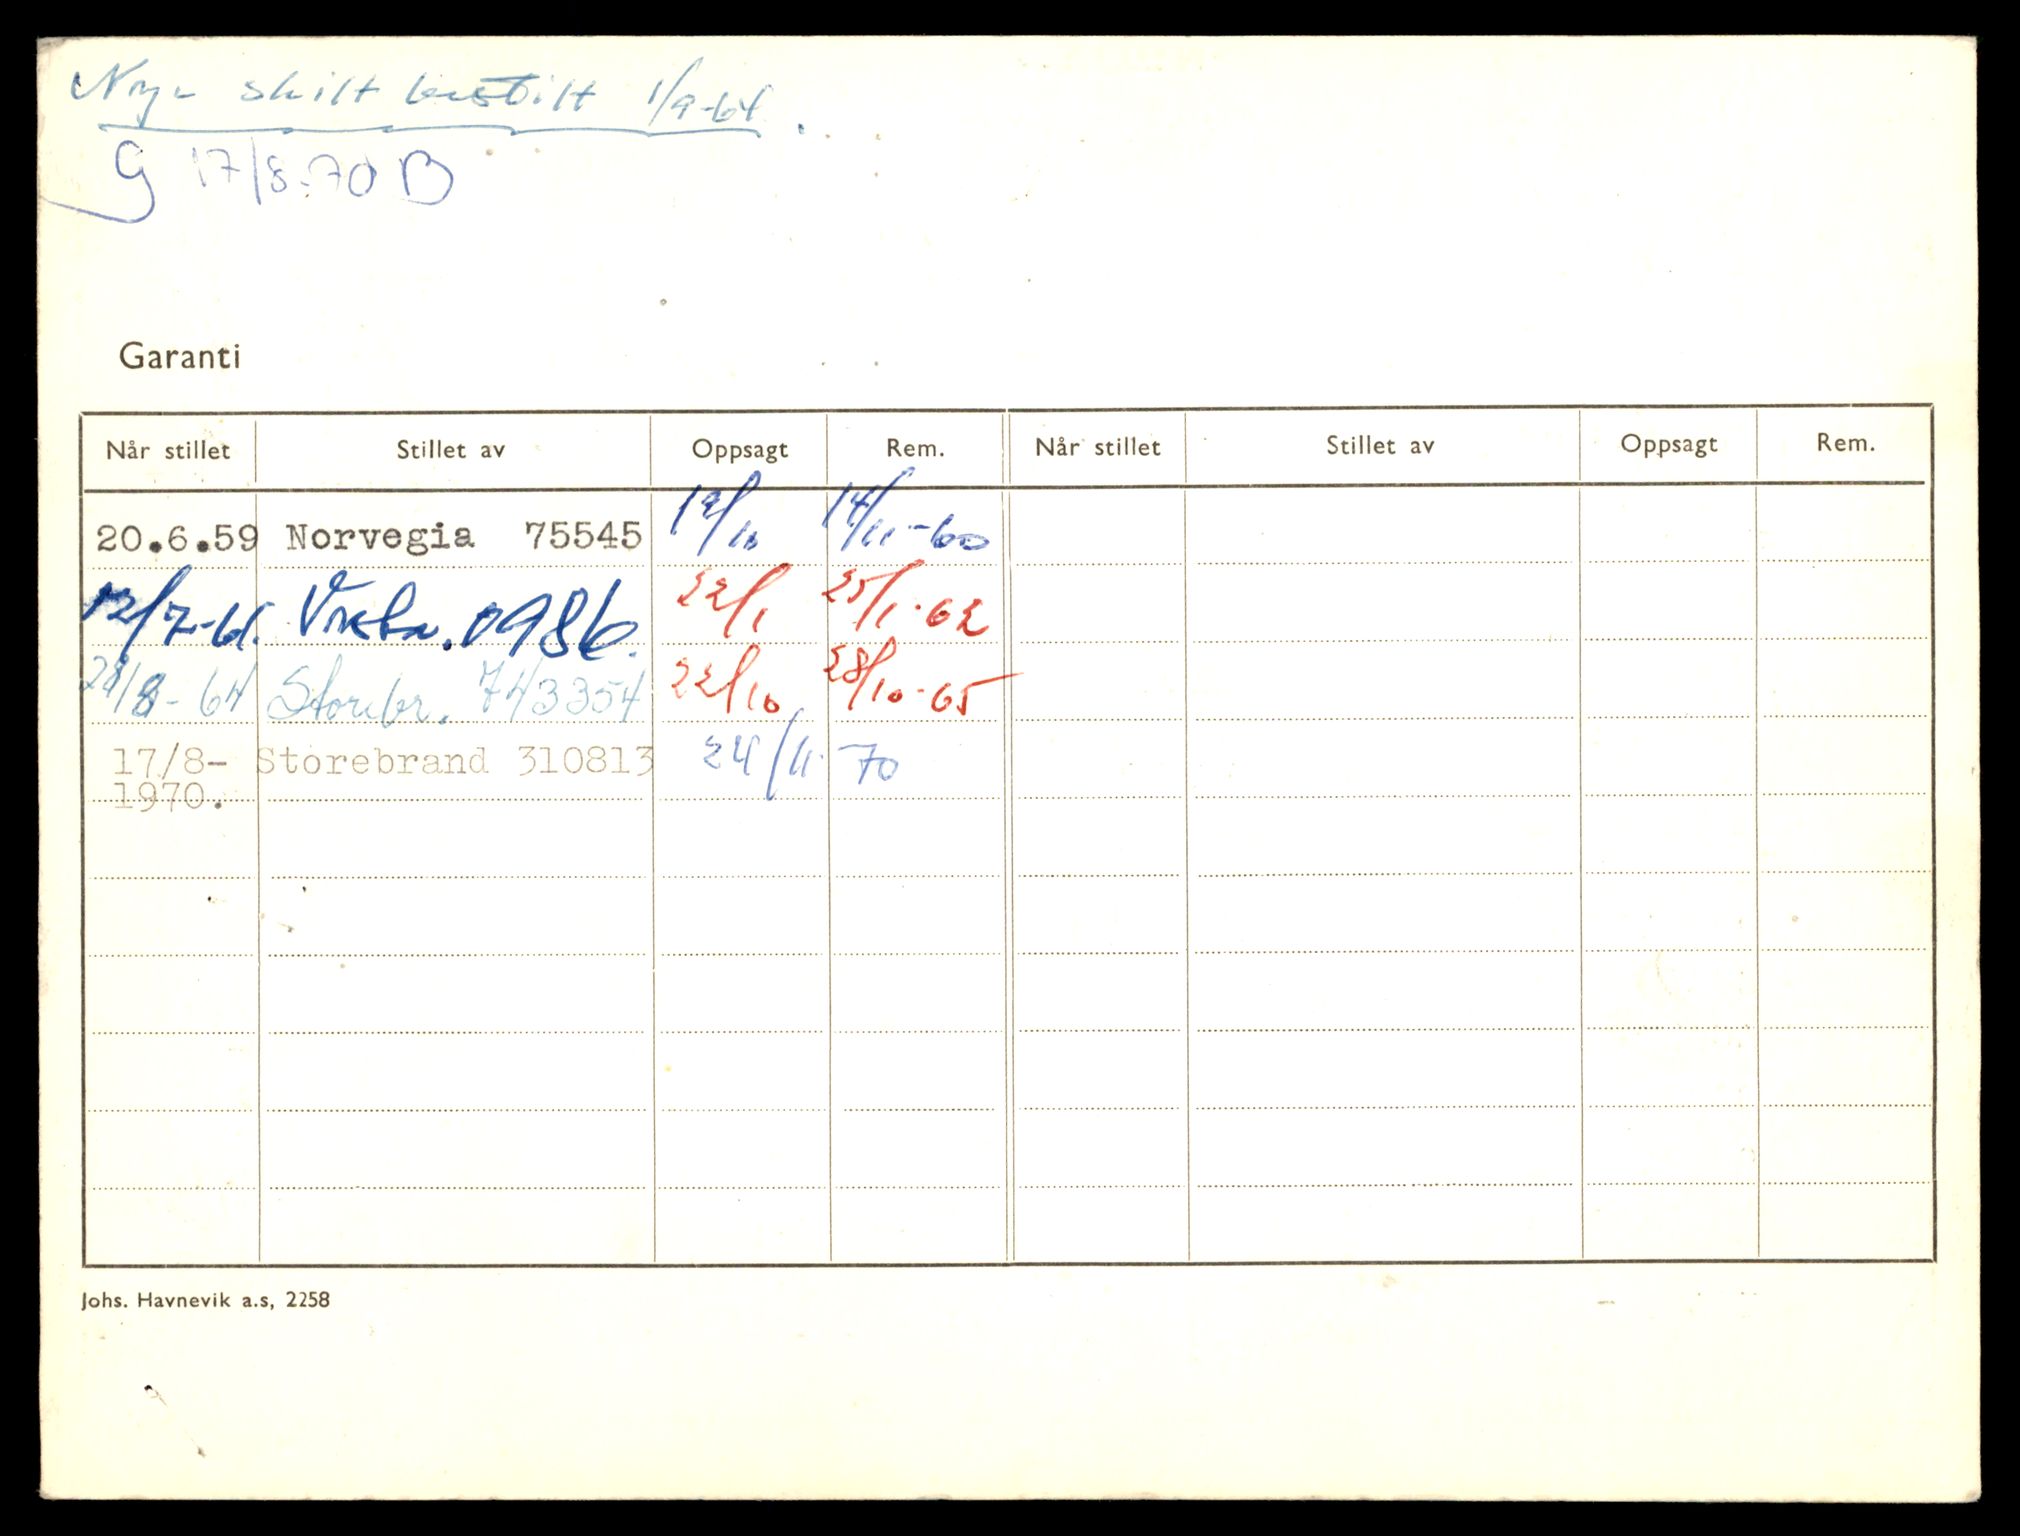 Nye skilt bestilt 1/9-64
G 17/8-70 B
Garanti
Når stillet Stillet av Oppsagt Rem. Når stillet Stillet av Oppsagt Rem.
20.6.59 Norvegia 75545 19/10 14/11-60
12/7-61. 0986. 22/1 25/1-62
28/8-64 Storebr. 743354 22/10 28/10-65
17/8- Storebrand 310813 24/11-70
1970.
Johs. Havnevik a.s, 2258